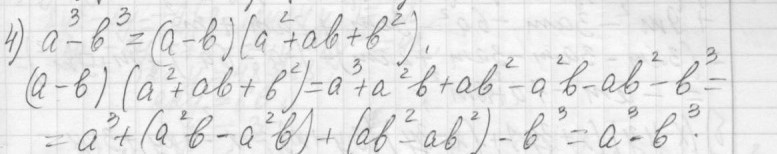 4) a³-b³=(a-b)(a²+ab+b²).
(a-b)(a²+ab+b²)=a³+a²b+ab²-a²b-ab²-b³=
=a³+(a²b-a²b)+(ab²-ab²)-b³=a³-b³.